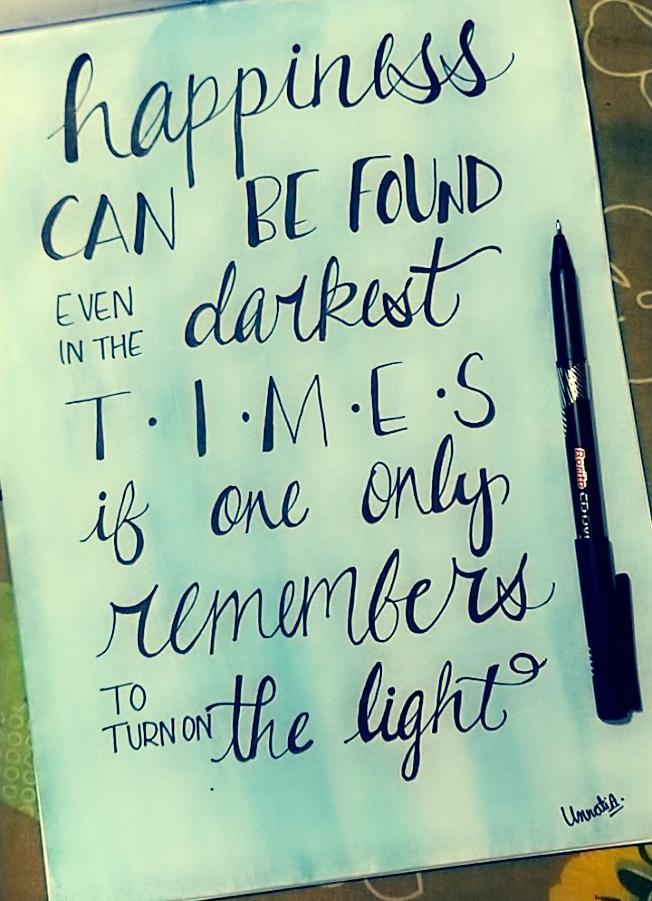 happiness
CAN BE FOUND
EVEN
IN THE
darkest
T·I·M·E·S
if one only
remembers
TO
TURN ON
the light
Unnati A.
Rorito